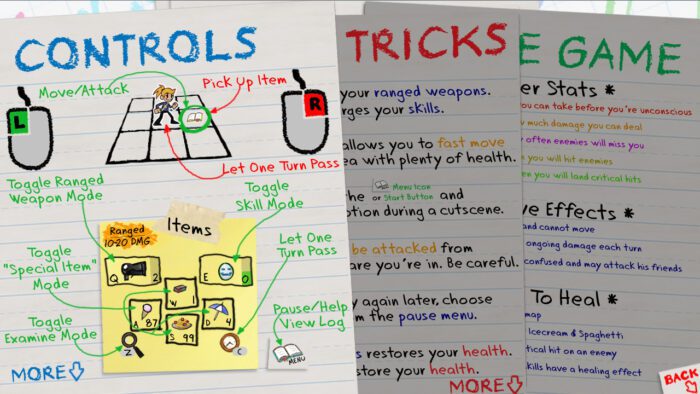 CONTROLS
Move/Attack
Pick Up Item
L
R
Let One Turn Pass
Toggle Ranged
Weapon Mode
Toggle
Skill Mode
Ranged
10-20 DMG.
Items
Let One
Turn Pass
Q 2
E 0
Toggle
"Special Item"
Mode
W 1
A 87
D 4
S 99
Toggle
Examine Mode
Z
C
Pause/Help
View Log
MENU
MORE
TRICKS
your ranged weapons.
rges your skills.
allows you to fast move
ea with plenty of health.
he Menu Icon or Start Button and
otion during a cutscene.
be attacked from
are you're in. Be careful.
y again later, choose
m the pause menu.
s restores your health.
store your health.
MORE
E GAME
er Stats *
ou can take before you're unconscious
w much damage you can deal
often enemies will miss you
you will hit enemies
en you will land critical hits
ve Effects *
and cannot move
ongoing damage each turn
confused and may attack his friends
To Heal *
map
Icecream & Spaghetti
tical hit on an enemy
skills have a healing effect
BACK